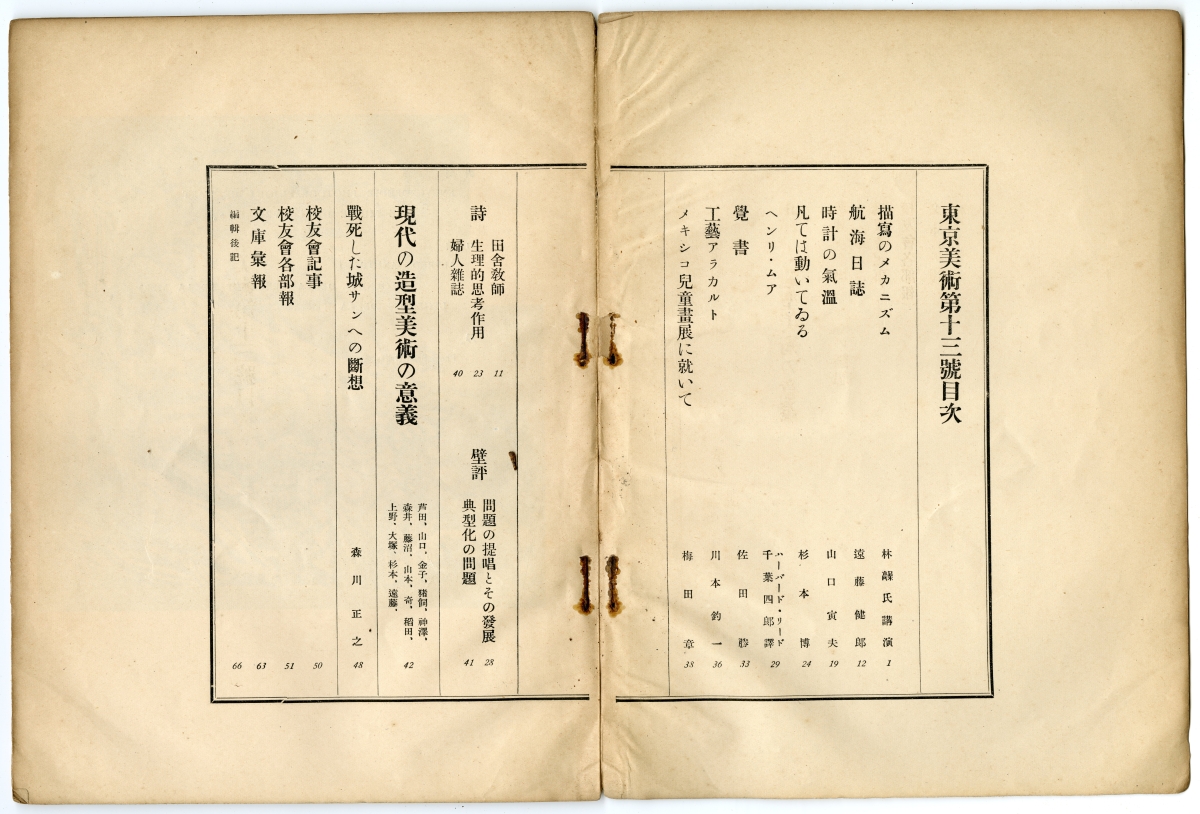 東京美術第十三號目次
描寫のメカニズム 林 氏講演 1
航海日誌 遠藤健郎 12
時計の氣溫 山口寅夫 19
凡ては動いてゐる 杉本博 24
ヘンリ・ムア ハーバード・リード 千葉四郎譯 29
覺書 佐田勝 33
工藝アラカルト 川本釣一 36
メキシコ兒童畫展に就いて 梅田章 38
詩
田舍敎師 11
生理的思考作用 23
婦人雜誌 40
壁評
問題の提唱とその發展 28
典型化の問題 41
現代の造型美術の意義
芦田、山口、金子、豬飼、神澤、
森井、藤沼、山本、奇、稻田、
上野、大塚、杉本、遠藤、
42
戰死した城サンへの斷想 森川正之 48
校友會記事 50
校友會各部報 51
文庫彙報 63
編輯後記 66